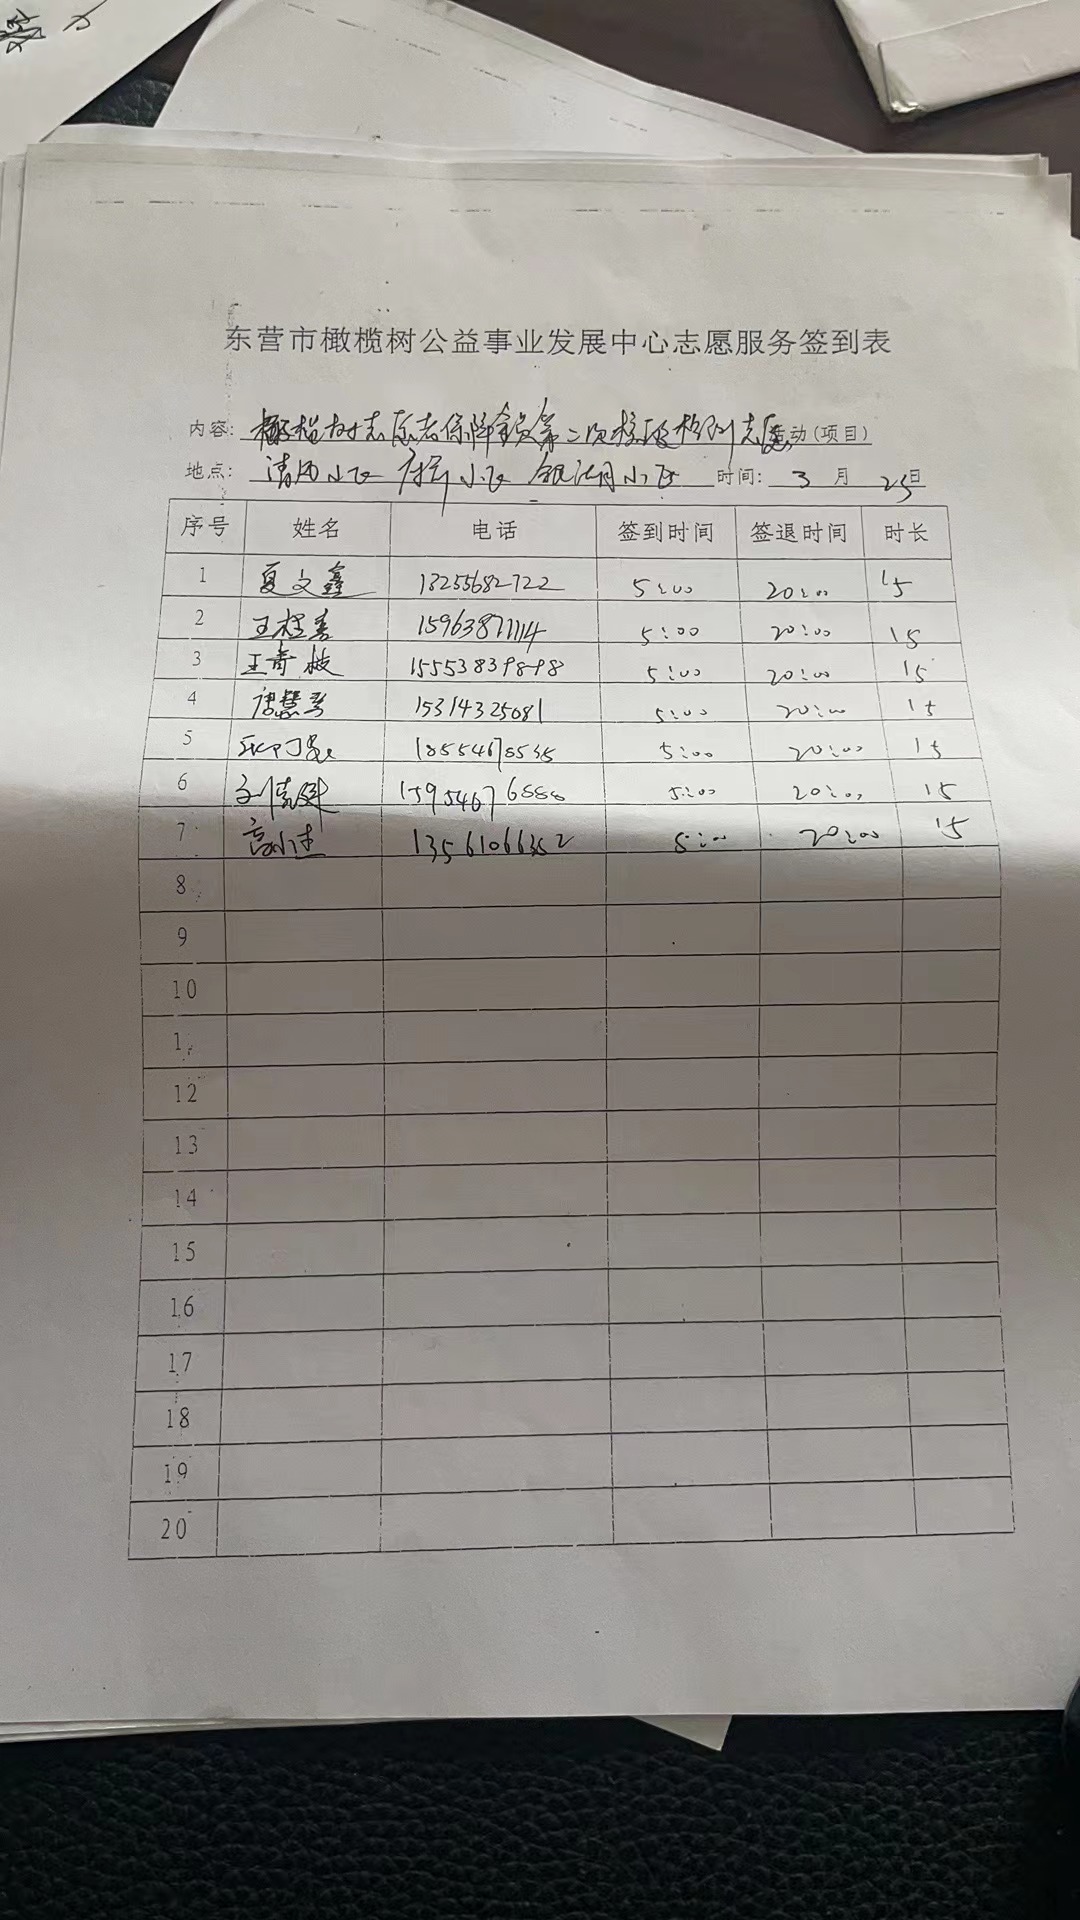 东营市橄榄树公益事业发展中心志愿服务签到表
内容: 橄榄树志愿者保障全员第二次核酸检测志愿活动(项目)
地点: 清风小区 小区 银河小区 时间: 3 月 25 日
序号 姓名 电话 签到时间 签退时间 时长
1 夏文鑫 13255682722 5:00 20:00 15
2 王桂秀 15963871114 5:00 20:00 15
3 王青枝 15553839898 5:00 20:00 15
4 唐慧秀 15314325081 5:00 20:00 15
5 18554678535 5:00 20:00 15
6 15954676888 5:00 20:00 15
7 高小杰 13561066352 5:00 20:00 15
8
9
10
1
12
13
14
15
16
17
18
19
20